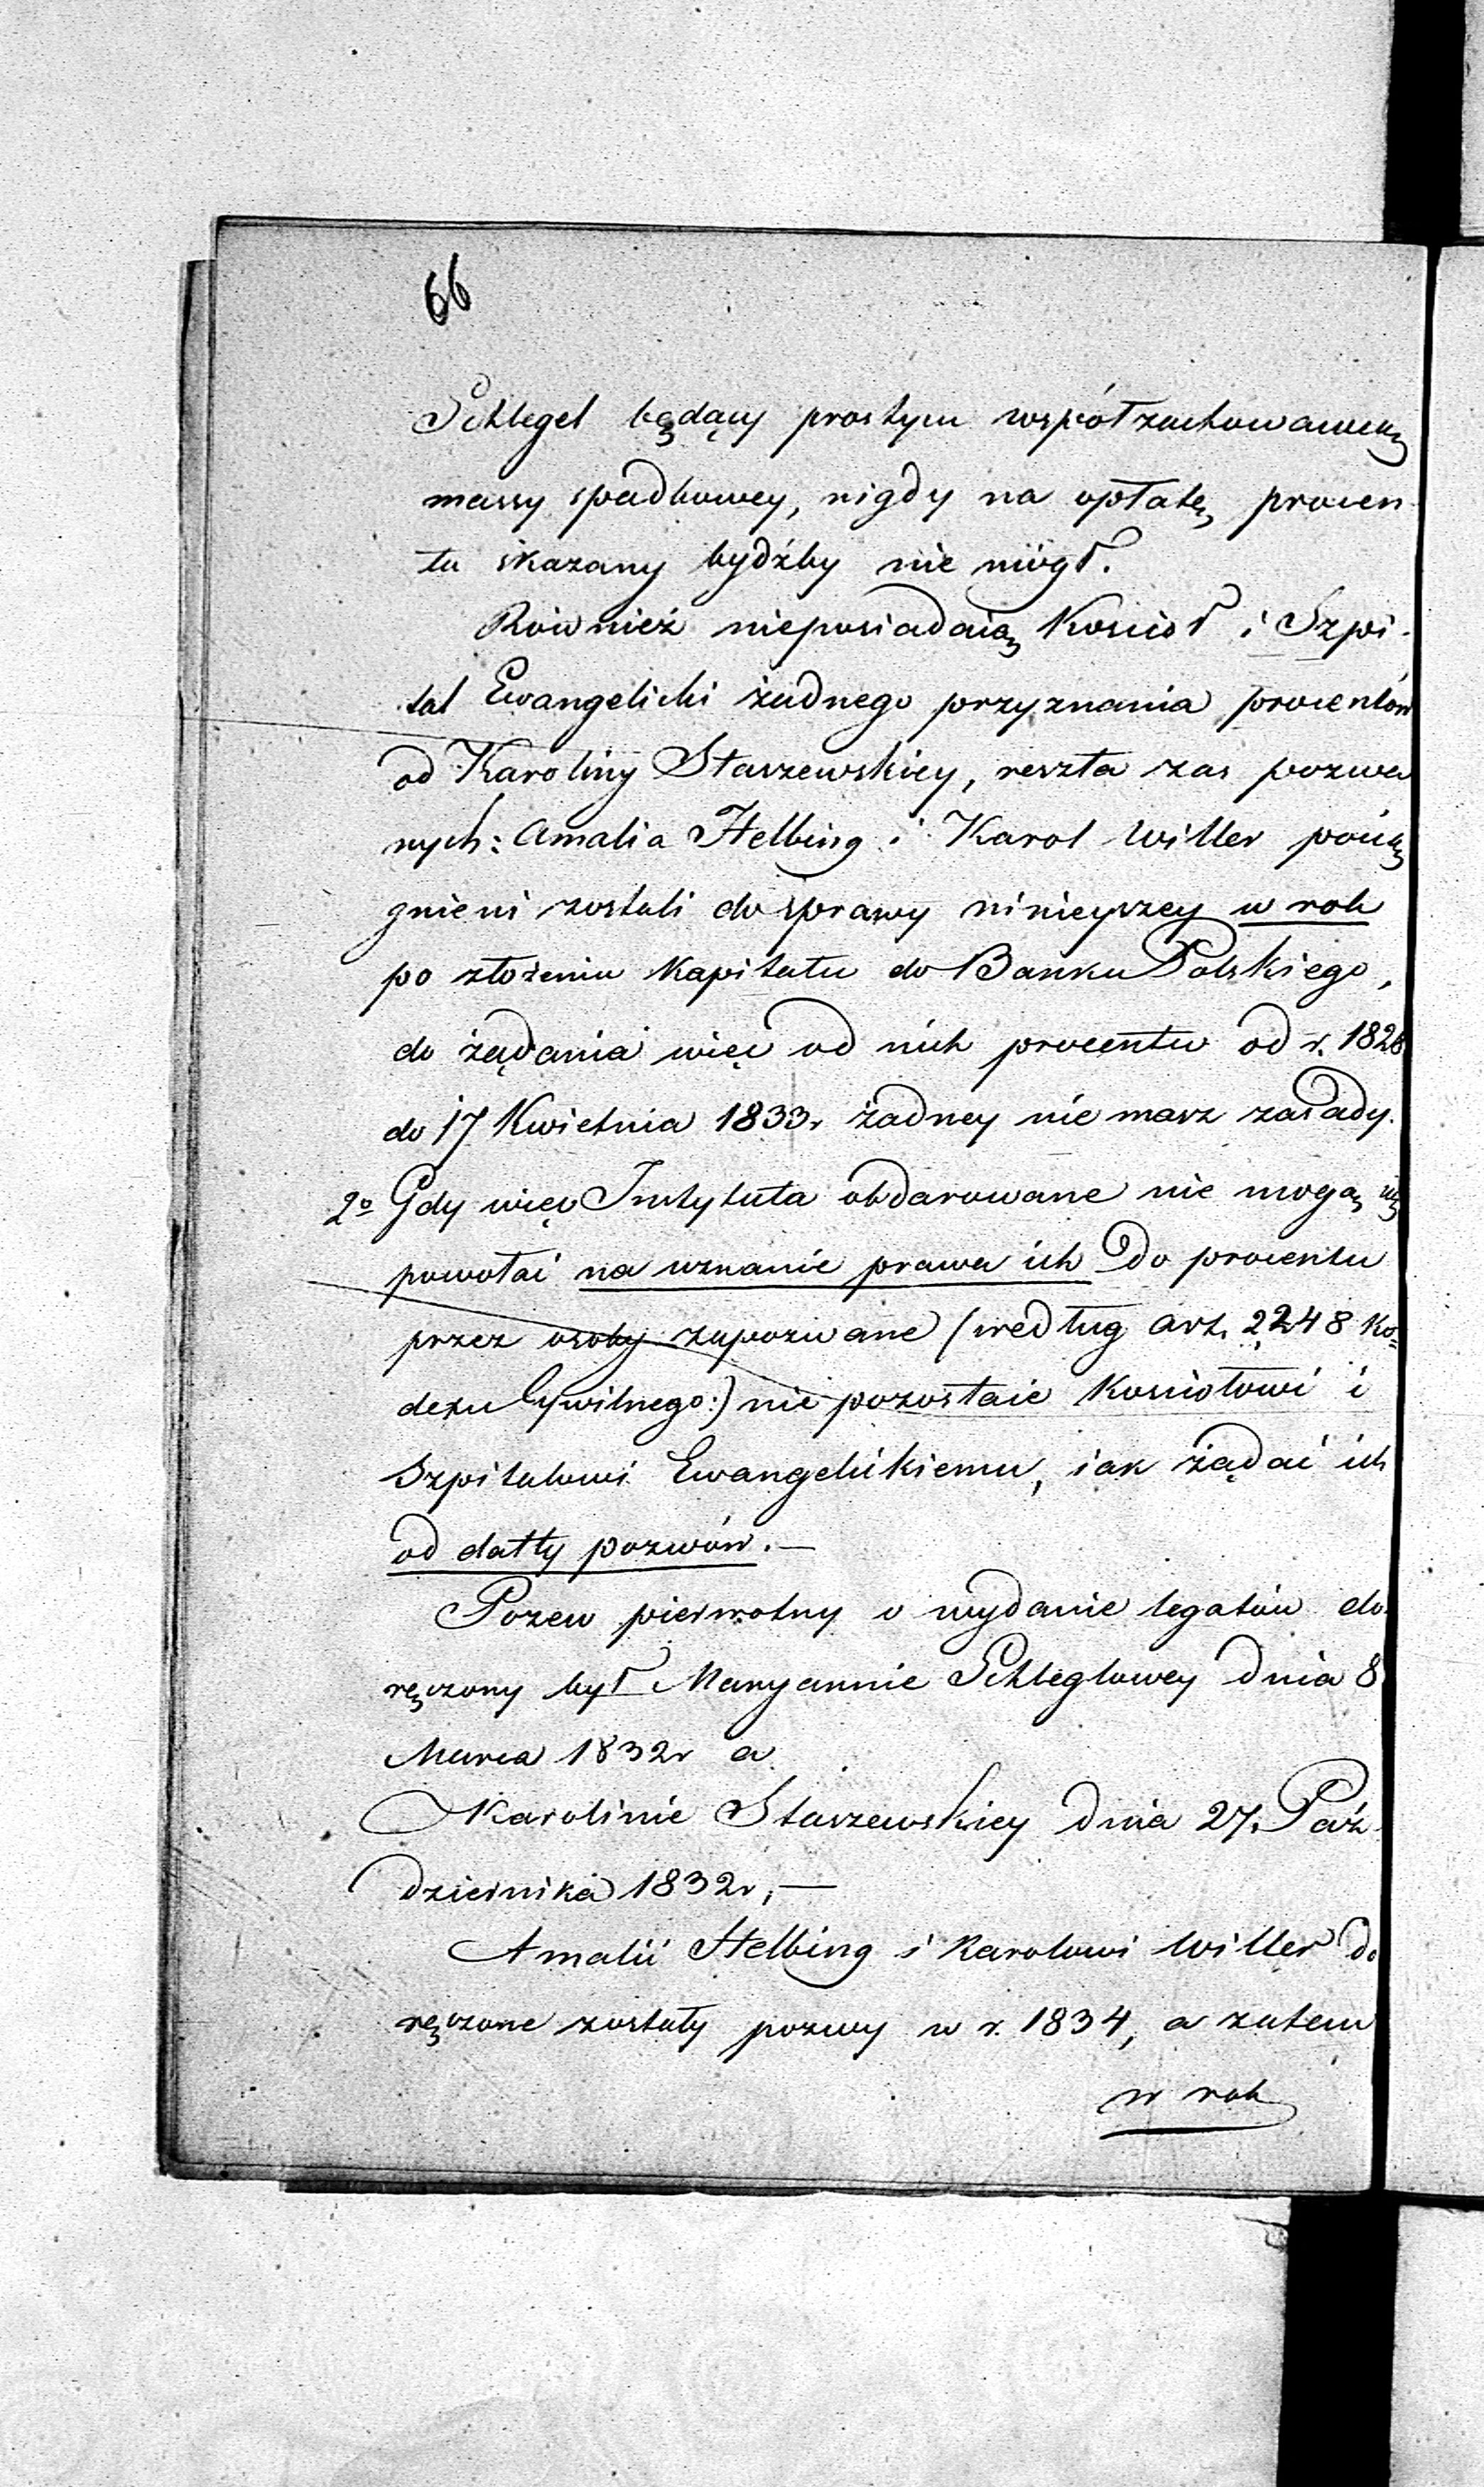 66
Schlegel będący prostym współzachowawcą
massy spadkowey, nigdy na opłatę procen-
tu skazany bydźby nie mógł.
Również nieposiadaią Kosciół i Szpi-
tal Ewangelicki żadnego przyznania procentów
od Karoliny Staszewskiey, reszta zas pozwa
nych: Amalia Helbing i Karol Willer pocią
gnieni zostali do sprawy ninieyszey w rok
po złożeniu Kapitału do Banku Polskiego,
do żądania więc od nich procentu od r. 1828
do 17 Kwietnia 1833r żadney nie masz zasady.
2o Gdy więc Instytuta obdarowane nie mogą się
powołać na uznanie prawa ich do procentu
przez osoby zapozwane (według art. 2248 Ko-
dexu Cywilnego:) nie pozostaie Kosciołowi i
Szpitalowi Ewangelickiemu, iak żądać ich
od datty pozwów. —
Pozew pierwotny o wydanie legatów do-
ręczony był Maryannie Schleglowey dnia 8
Marca 1832r a
Karolinie Staszewskiey dnia 27. Paź-
dziernika 1832r, —
Amalii Helbing i Karolowi Willer do
ręczone zostały pozwy w r. 1834, a zatem
w rok